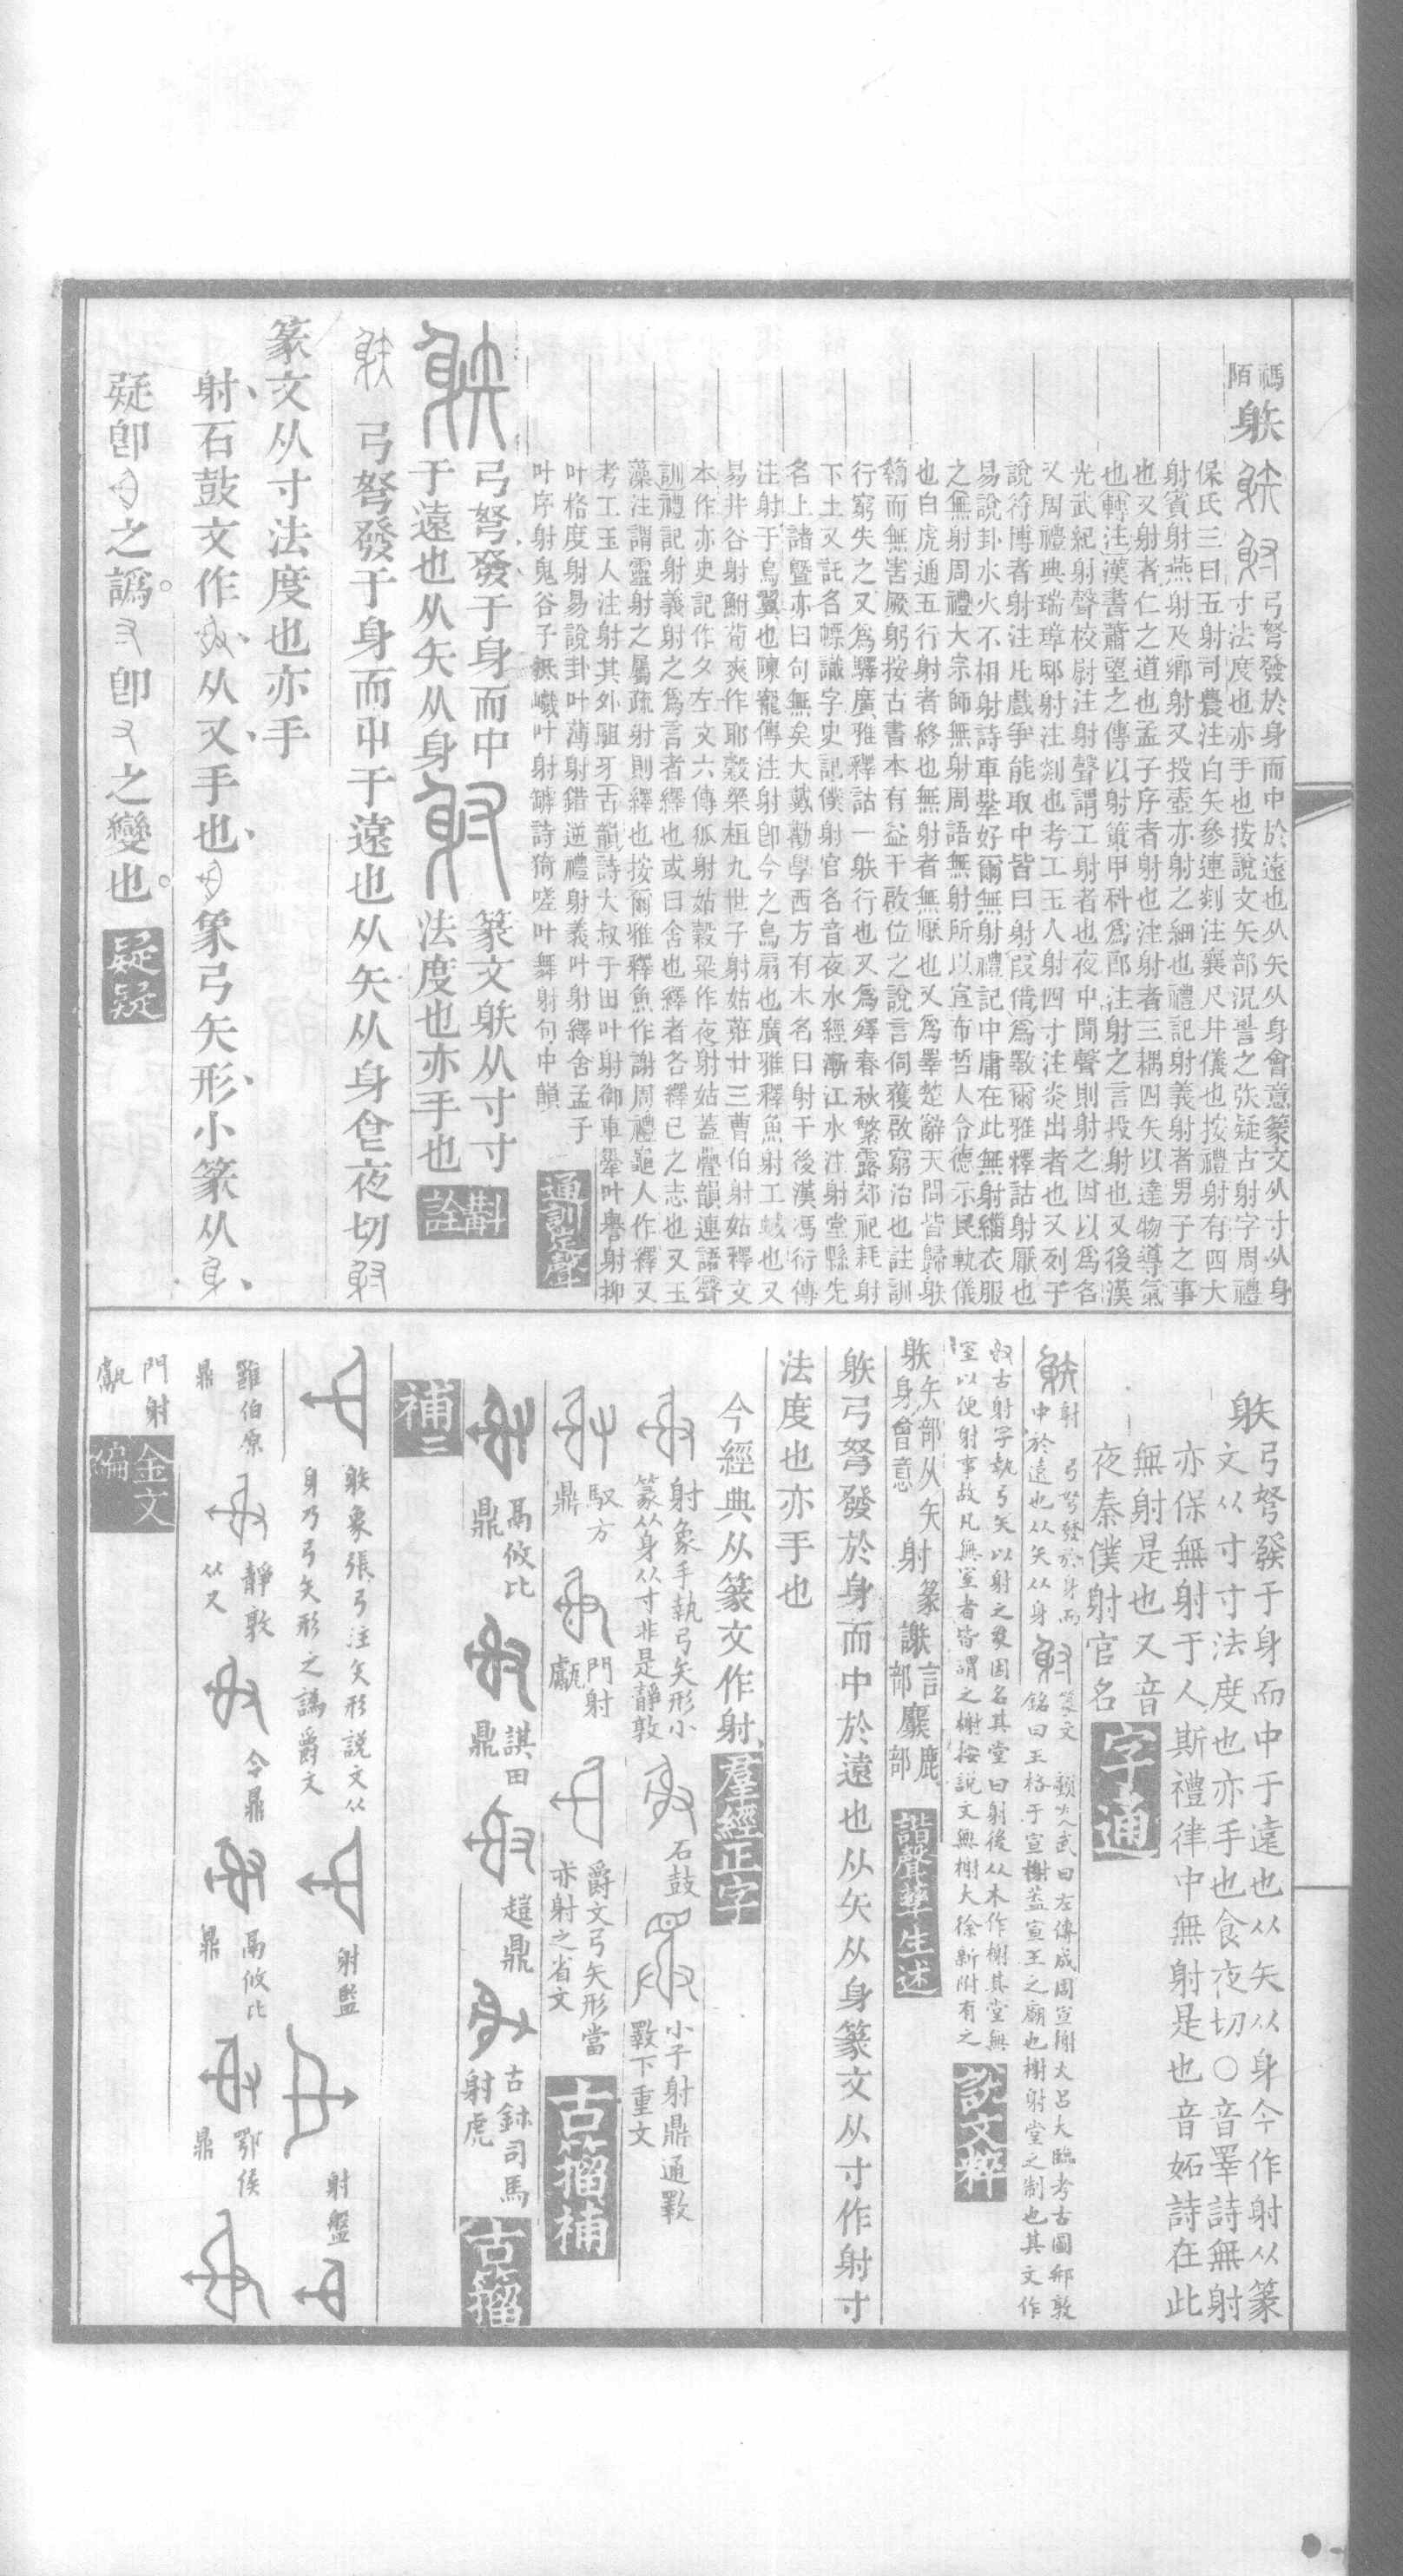 禡陌
䠶
弓弩發於身而中於遠也从矢从身會意篆文从寸从身
寸寸法度也亦手也按說文矢部況𧩙之矤疑古射字周禮
保氏三曰五射司農注白矢參連剡注襄尺井儀也按禮射有四大
射賓射燕射及鄉射又投壺亦射之細也禮記射義射者男子之事
也又射者仁之道也孟子序者射也注射者三耦四矢以達物導氣
也轉注漢書蕭望之傳以射策甲科爲郎注射之言投射也又後漢
光武紀射聲校尉注射聲謂工射者也夜中聞聲則射之因以爲名
又周禮典瑞璋邸射注剡也考工玉人射四寸注炎出者也又列子
說符博者射注凡戲爭能取中皆曰射假借爲斁爾雅釋詁射厭也
易說卦水火不相射詩車舝好爾無射禮記中庸在此無射緇衣服
之無射周禮大宗師無射周語無射所以宣布哲人令德示民軌儀
也白虎通五行射者終也無射者無厭也又爲睪楚辭天問皆歸䠶
䈑而無害厥躬按古書本有益干啟位之說言伺獲啟窮治也註訓
行窮失之又爲驛廣雅釋詁一䠶行也又爲繹春秋繁露郊祀耗射
下土又託名幖識字史記僕射官名音夜水經漸江水注射堂縣先
名上諸暨亦曰句無矣大戴勸學西方有木名曰射干後漢馮衍傳
注射于烏翼也陳寵傳注射卽今之烏扇也廣雅釋魚射工蜮也又
易井谷射鮒荀爽作耶穀梁桓九世子射姑莊廿三曹伯射姑釋文
本作亦史記作夕左文六傳狐射姑穀梁作夜射姑蓋疊韻連語聲
訓禮記射義射之爲言者繹也或曰舍也繹者各繹己之志也又玉
藻注謂靈射之屬疏射則繹也按爾雅釋魚作謝周禮龜人作繹又
考工玉人注射其外鉏牙古韻詩大叔于田叶射御車舝叶譽射抑
叶格度射易說卦叶薄射錯逆禮射義叶射繹舍孟子
叶序射鬼谷子抵巇叶射罅詩猗嗟叶舞射句中韻
通訓定聲
弓弩發于身而中
于遠也从矢从身
篆文䠶从寸寸
法度也亦手也
斠詮
弓弩發于身而中于遠也从矢从身食夜切
篆文从寸法度也亦手
射石鼓文作从又手也象弓矢形小篆从
疑卽之譌卽之變也
疑疑
䠶
弓弩發于身而中于遠也从矢从身今作射从篆
文从寸寸法度也亦手也食夜切〇音睪詩無射
亦保無射于人斯禮律中無射是也音妬詩在此
無射是也又音
夜秦僕射官名
字通
射弓弩發於身而
中於遠也从矢从身
篆文 頴武曰左傳成周宣榭火呂大臨考古圖䢵敦
銘曰王格于宣榭蓋宣王之廟也榭射堂之制也其文作
古射字執弓矢以射之象因名其堂曰射後从木作榭其堂無
室以便射事故凡無室者皆謂之榭按說文無榭大徐新附有之
說文粹
䠶 矢部从矢身會意 射 篆 謝 言部 麝 鹿部
諧聲孳生述
䠶弓弩發於身而中於遠也从矢从身篆文从寸作射寸
法度也亦手也
今經典从篆文作射
羣經正字
射象手執弓矢形小
篆从身从寸非是靜敦
石鼓
小子射鼎通斁
斁下重文
馭方鼎
門射甗
爵文弓矢形當
亦射之省文
古籀補
鬲攸比鼎
諆田鼎
趞鼎
古鉥司馬射虎
古籀
補二
䠶象張弓注矢形說文从
身乃弓矢形之譌爵文
射盤
射盤
雝伯原鼎
靜敦
从又
令鼎
鬲攸比鼎
鄂侯鼎
門射甗
金文編